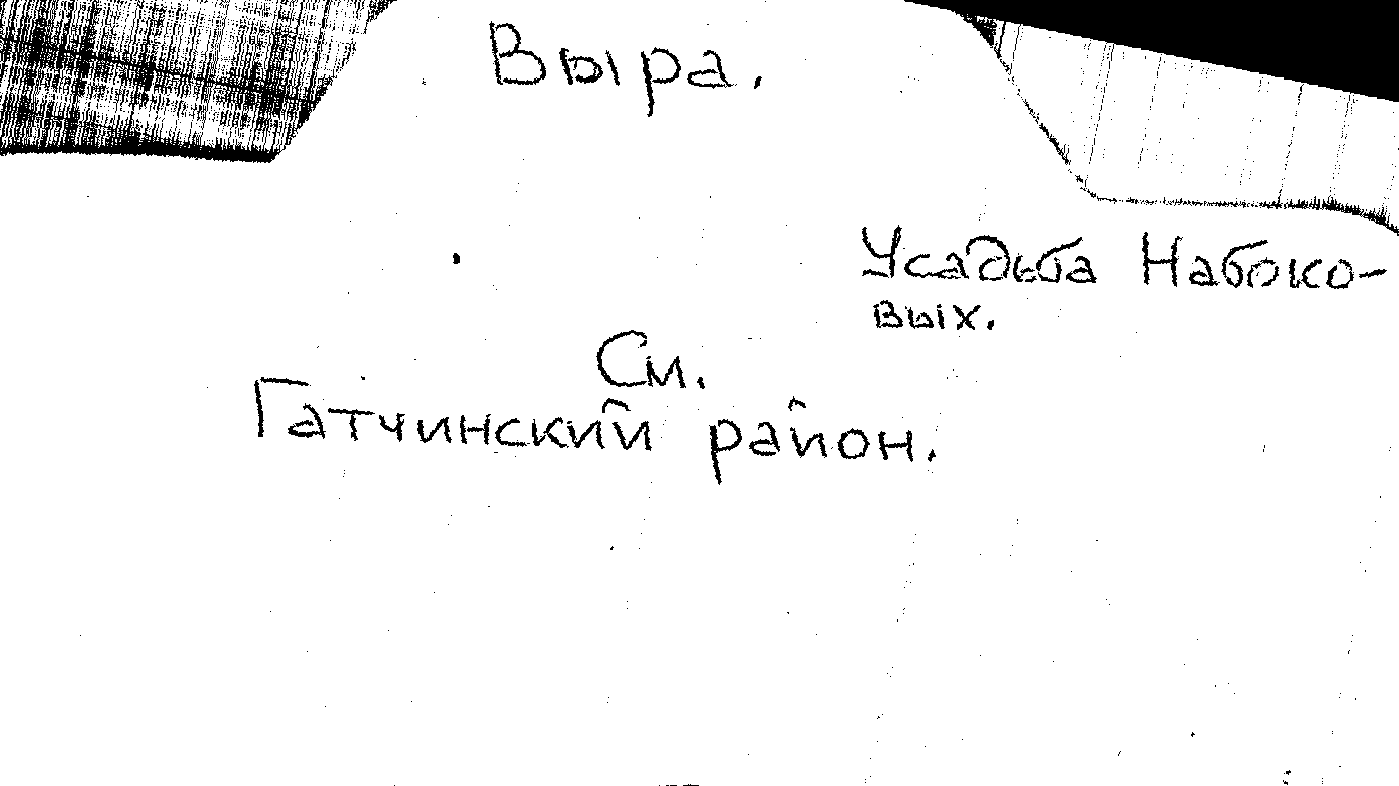 Выра.
Усадьба Набоко-
вых.
См.
Гатчинский район.